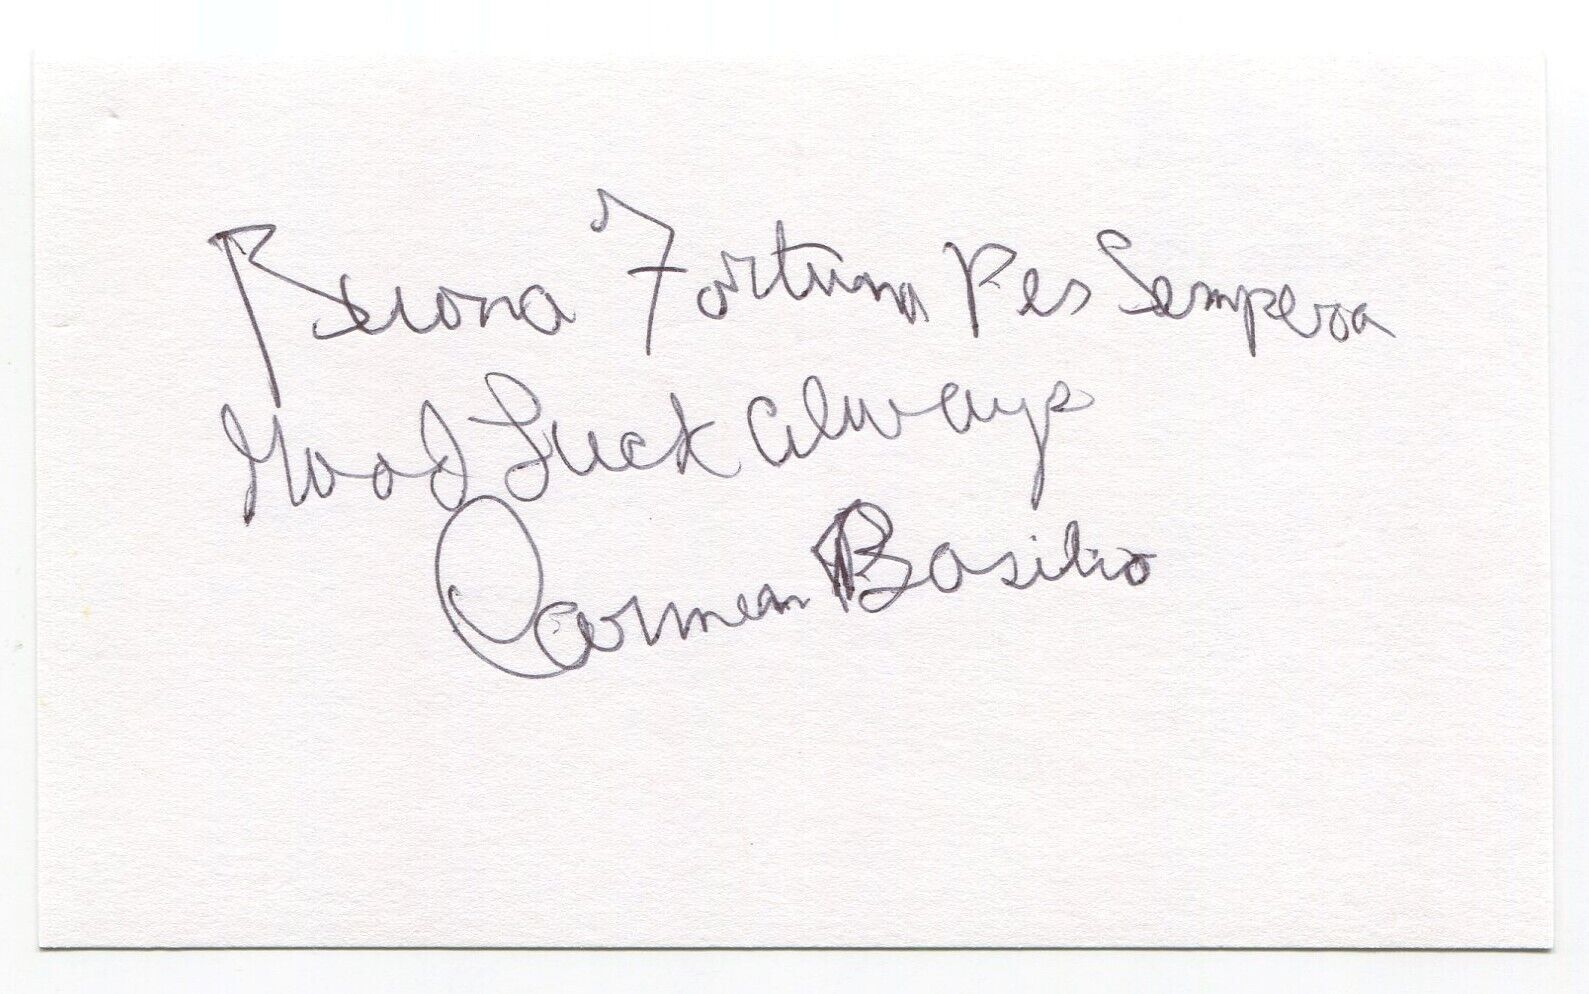 Buona Fortuna Per Sempera
Good Luck Always
Carmen Basilio